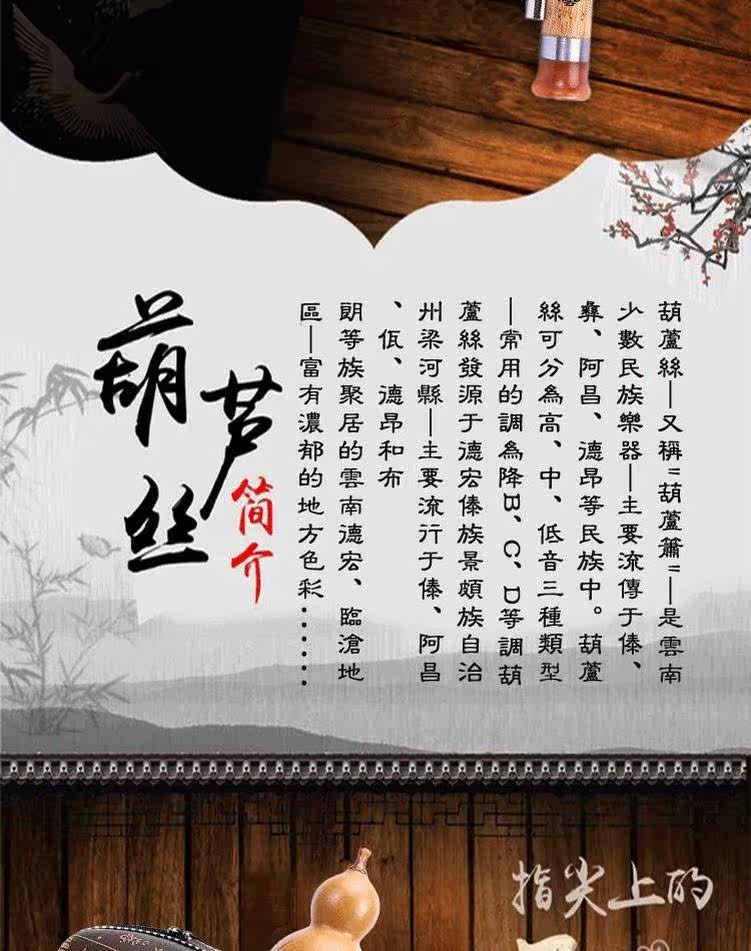 葫芦丝
简介
葫蘆絲—又稱"葫蘆簫"—是雲南
少數民族樂器—主要流傳于傣、
彝、阿昌、德昂等民族中。葫蘆
絲可分為高、中、低音三種類型
—常用的調為降B、C、D等調葫
蘆絲發源于德宏傣族景頗族自治
州梁河縣—主要流行于傣、阿昌
、佤、德昂和布
朗等族聚居的雲南德宏、臨滄地
區—富有濃郁的地方色彩......
指尖上的